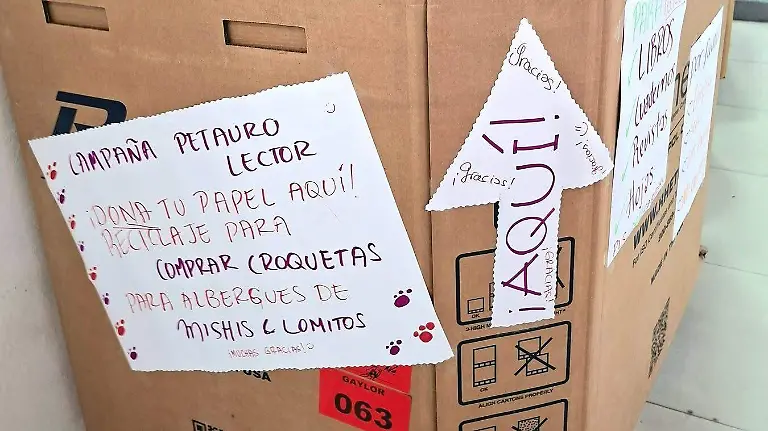 CAMPAÑA PETAURO
LECTOR
¡DONA TU PAPEL AQUÍ!
RECICLAJE PARA
COMPRAR CROQUETAS
PARA ALBERGUES DE
MISHIS & LOMITOS
¡MUCHAS GRACIAS!
¡Gracias!
¡Gracias!
¡Gracias!
¡AQUÍ!
¡GRACIAS!
LIBROS
Cuadernos
Revistas
Hojas
WWW.
USA
GAYLOR
063
OK
OK
ALIGN CARTONS PROPERLY